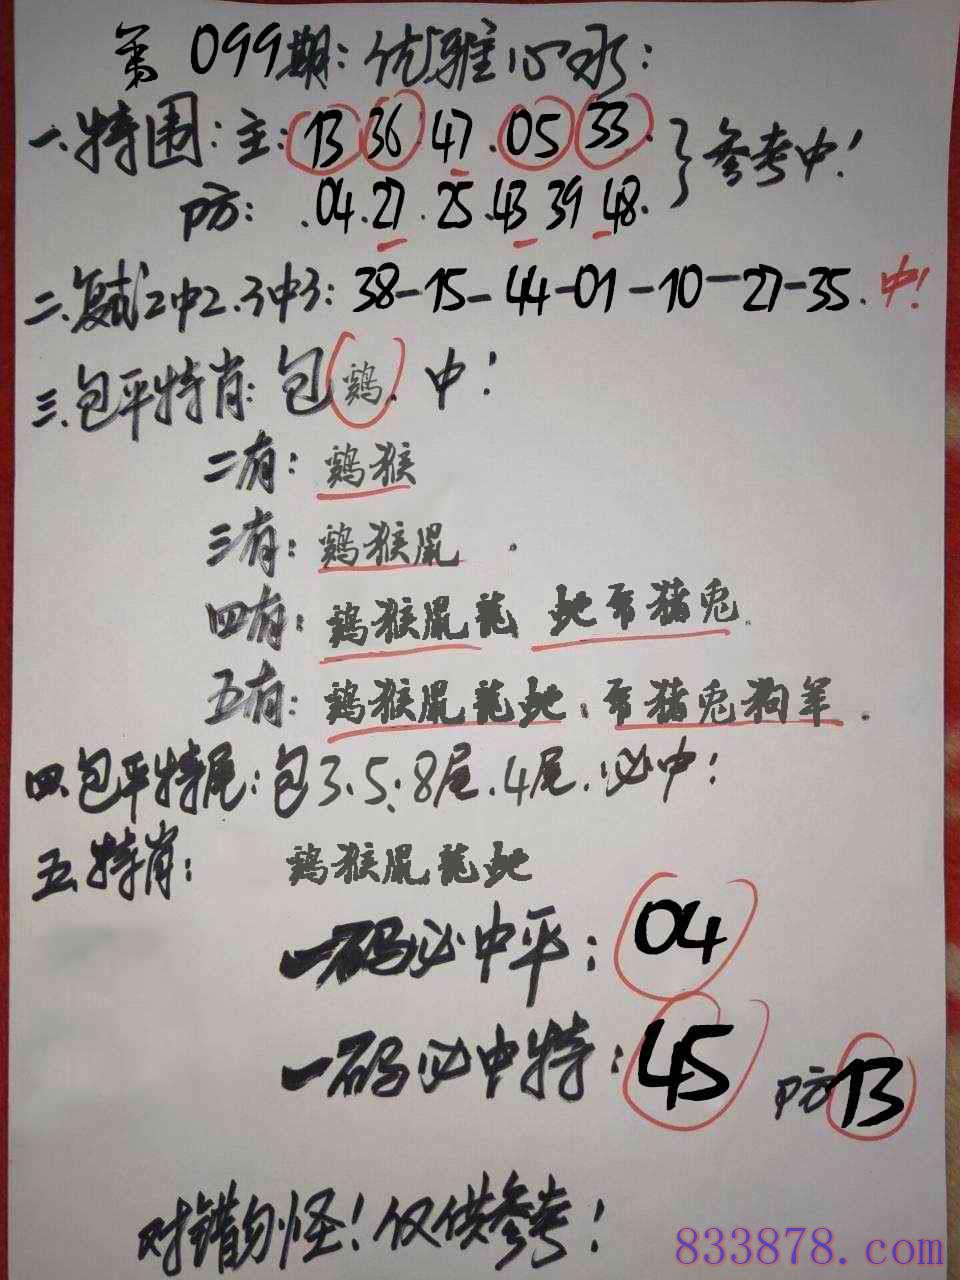 第099期:优雅心水:
一.特围:主:13 36 47.05 33.
防:.04.27.25.43 39 48.
参考中!
二.复试2中2.3中3:38-15-44-01-10-27-35.中!
三.包平特肖:包鷄.中!
二有:鷄猴
三有:鷄猴鼠.
四有:鷄猴鼠龍 虵马猪兎.
五有:鷄猴鼠龍虵:马猪兎狗羊.
四.包平特尾:包3.5:8尾.4尾.必中!
五.特肖:鷄猴鼠龍虵
一码必中平:04
一码必中特:45 防13
对错勿怪!仅供参考!
833878.com